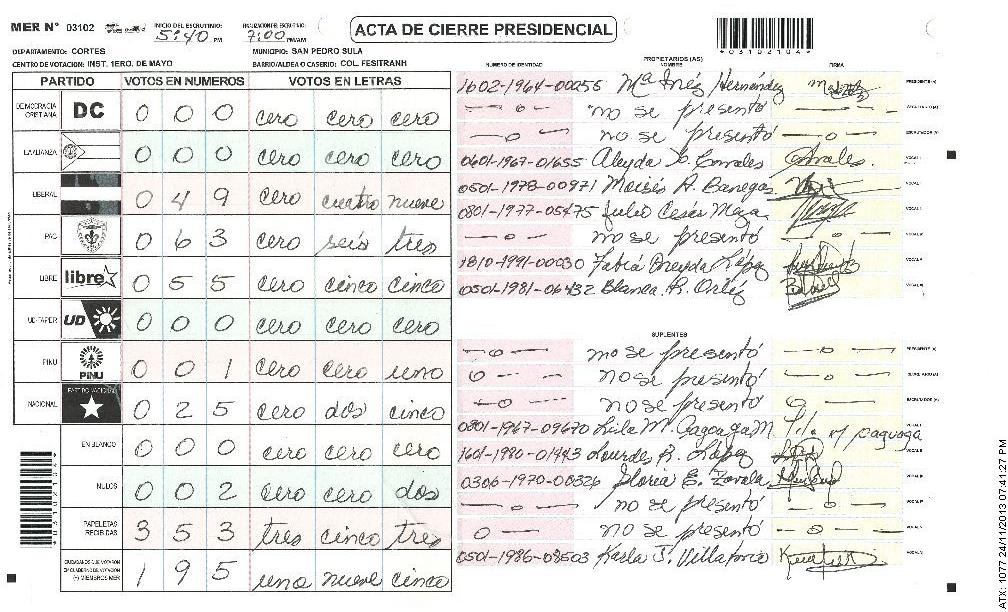 MER N° 03102 INICIO DEL ESCRUTINIO: 5:40 PM FINALIZACION DEL ESCRUTINIO: 7:00 PM/AM
ACTA DE CIERRE PRESIDENCIAL
03102104
DEPARTAMENTO: CORTES MUNICIPIO: SAN PEDRO SULA
CENTRO DE VOTACION: INST. 1ERO. DE MAYO BARRIO/ALDEA O CASERIO: COL. FESITRANH
PARTIDO VOTOS EN NUMEROS VOTOS EN LETRAS
DEMOCRACIA CRISTIANA DC 0 0 0 cero cero cero
LA ALIANZA 0 0 0 cero cero cero
LIBERAL 0 4 9 cero cuatro nueve
PAC 0 6 3 cero seis tres
LIBRE libre 0 5 5 cero cinco cinco
UD-FAPER UD 0 0 0 cero cero cero
PINU PINU 0 0 1 cero cero uno
NACIONAL PARTIDO NACIONAL 0 2 5 cero dos cinco
EN BLANCO 0 0 0 cero cero cero
NULOS 0 0 2 cero cero dos
PAPELETAS RECIBIDAS 3 5 3 tres cinco tres
CIUDADANOS QUE VOTARON EN CUADERNO DE VOTACION (+) MIEMBROS MER 1 9 5 uno nueve cinco
PROPIETARIOS (AS)
NUMERO DE IDENTIDAD NOMBRE FIRMA
1602-1964-00055 Mª Inés Hernández PRESIDENTE (A)
— o — no se presentó — o — SECRETARIO (A)
— o — no se presentó — o — ESCRUTADOR (A)
0601-1967-01655 Aleyda S. Corrales Corrales VOCAL I
0501-1978-00971 Moisés A. Banegas VOCAL
0801-1977-05475 Julio Cesár Meza VOCAL
— o — no se presentó — o — VOCAL
1810-1991-00030 López VOCAL
0501-1981-06432 Blanca R. Ortíz VOCAL
SUPLENTES
— o — no se presentó — o — PRESIDENTE (A)
o — no se presentó — o — SECRETARIO (A)
— o — no se presentó o — ESCRUTADOR (A)
0801-1967-09670 Leila M. Pagoaga M. VOCAL
1601-1980-01943 Lourdes R. López VOCAL
0306-1970-00326 Gloria E. Zavala VOCAL
— o — no se presentó — o — VOCAL
o — no se presentó — o — VOCAL
0501-1986-08503 Karla J. Villafranca VOCAL
ATX: 1077 24/11/2013 07:41:27 PM